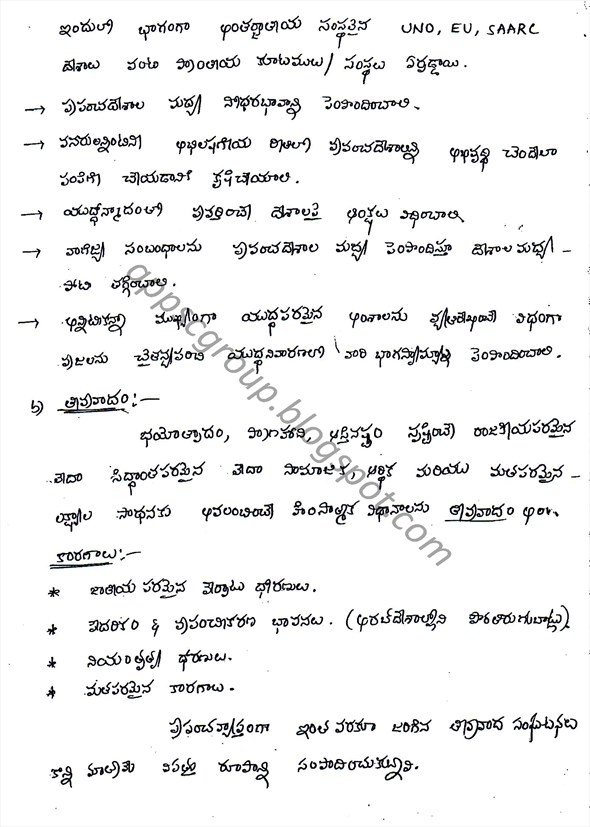 ఇందులో భాగంగా అంతర్జాతీయ సంస్థలైన UNO, EU, SAARC
దేశాలు వంటి ప్రాంతీయ కూటములు/ సంస్థలు ఏర్పడ్డాయి.
→ ప్రపంచదేశాల మధ్య సోదరభావాన్ని పెంపొందించాలి.
→ వనరులన్నింటిని అభిలషణీయ రీతిలో ప్రపంచదేశాలన్ని అభివృద్ధి చెందేలా
పంపిణీ చేయడానికి కృషిచేయాలి.
→ యుద్ధోన్మాదంతో ప్రవర్తించే దేశాలపై ఆంక్షలు విధించాలి
→ వాణిజ్య సంబంధాలను ప్రపంచదేశాల మధ్య పెంపొందిస్తూ దేశాల మధ్య –
పోటి తగ్గించాలి.
→ అన్నిటికన్నా ముఖ్యంగా యుద్ధపరమైన అంశాలను వ్యతిరేఖించే విధంగా
ప్రజలను చైతన్యపరచి యుద్ధనివారణలో వారి భాగస్వామ్యాన్ని పెంపొందించాలి.
b) తీవ్రవాదం:—
భయోత్పాదం, ప్రాణహాని, ఆస్తినష్టం సృష్టించే రాజకీయపరమైన
లేదా సిద్ధాంతపరమైన లేదా సామాజిక, ఆర్థిక మరియు మతపరమైన –
లక్ష్యాల సాధనకు అవలంబించే హింసాత్మక విధానాలను తీవ్రవాదం అంటారు.
కారణాలు:—
* జాతీయ పరమైన వేర్పాటు ధోరణులు.
* పేదరికం & ప్రపంచీకరణ భావనలు. (అరబ్‌దేశాల్లోని పోరు తిరుగుబాట్లు)
* నియంతృత్వ ధోరణులు.
* మతపరమైన కారణాలు.
ప్రపంచవ్యాప్తంగా ఇంత వరకూ జరిగిన తీవ్రవాద సంఘటనలు
కొన్ని మాత్రమే విపత్తు రూపాన్ని సంపాదించుకున్నవి.
appscgroup.blogspot.com